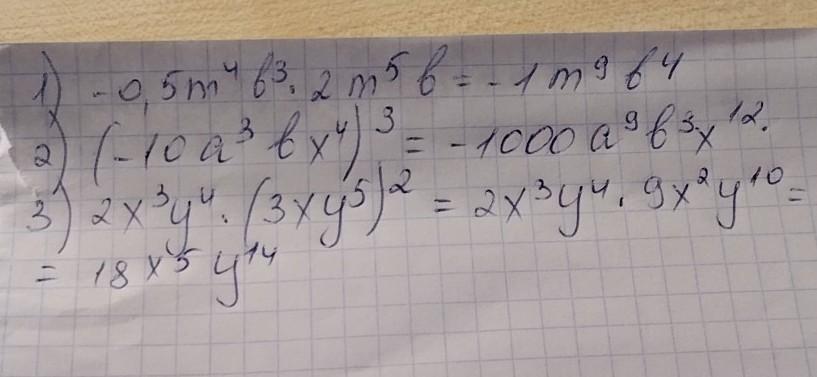 1) -0,5m⁴b³·2m⁵b=-1m⁹b⁴
2) (-10a³bx⁴)³=-1000a⁹b³x¹².
3) 2x³y⁴·(3xy⁵)²=2x³y⁴·9x²y¹⁰=
=18x⁵y¹⁴